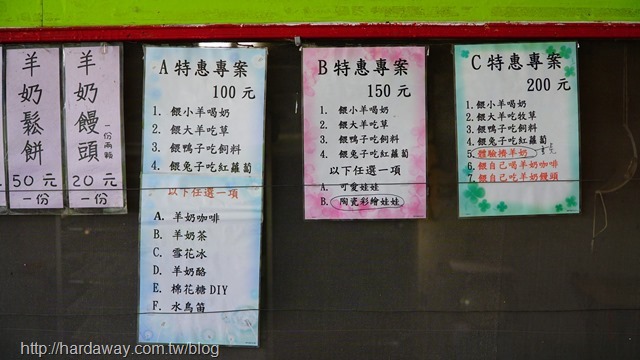 羊奶鬆餅
50元
一份
羊奶饅頭
一份兩顆
20元
一份
A 特惠專案
100 元
1. 餵小羊喝奶
2. 餵大羊吃草
3. 餵鴨子吃飼料
4. 餵兔子吃紅蘿蔔
以下任選一項
A. 羊奶咖啡
B. 羊奶茶
C. 雪花冰
D. 羊奶酪
E. 棉花糖DIY
F. 水鳥笛
B 特惠專案
150 元
1. 餵小羊喝奶
2. 餵大羊吃草
3. 餵鴨子吃飼料
4. 餵兔子吃紅蘿蔔
以下任選一項
A. 可愛娃娃
B. 陶瓷彩繪娃娃
C 特惠專案
200 元
1. 餵小羊喝奶
2. 餵大羊吃牧草
3. 餵鴨子吃飼料
4. 餵兔子吃紅蘿蔔
5. 體驗擠羊奶
6. 餵自己喝羊奶咖啡
7. 餵自己吃羊奶饅頭
http://hardaway.com.tw/blog